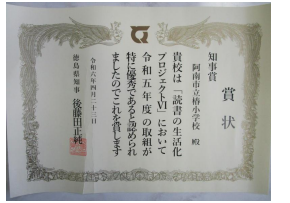 知事賞
賞状
阿南市立椿小学校 殿
貴校は「読書の生活化
プロジェクトⅥ」において
令和五年度の取組が
特に優秀であると認められ
ましたのでこれを賞します
令和六年四月二十三日
徳島県知事 後藤田正純